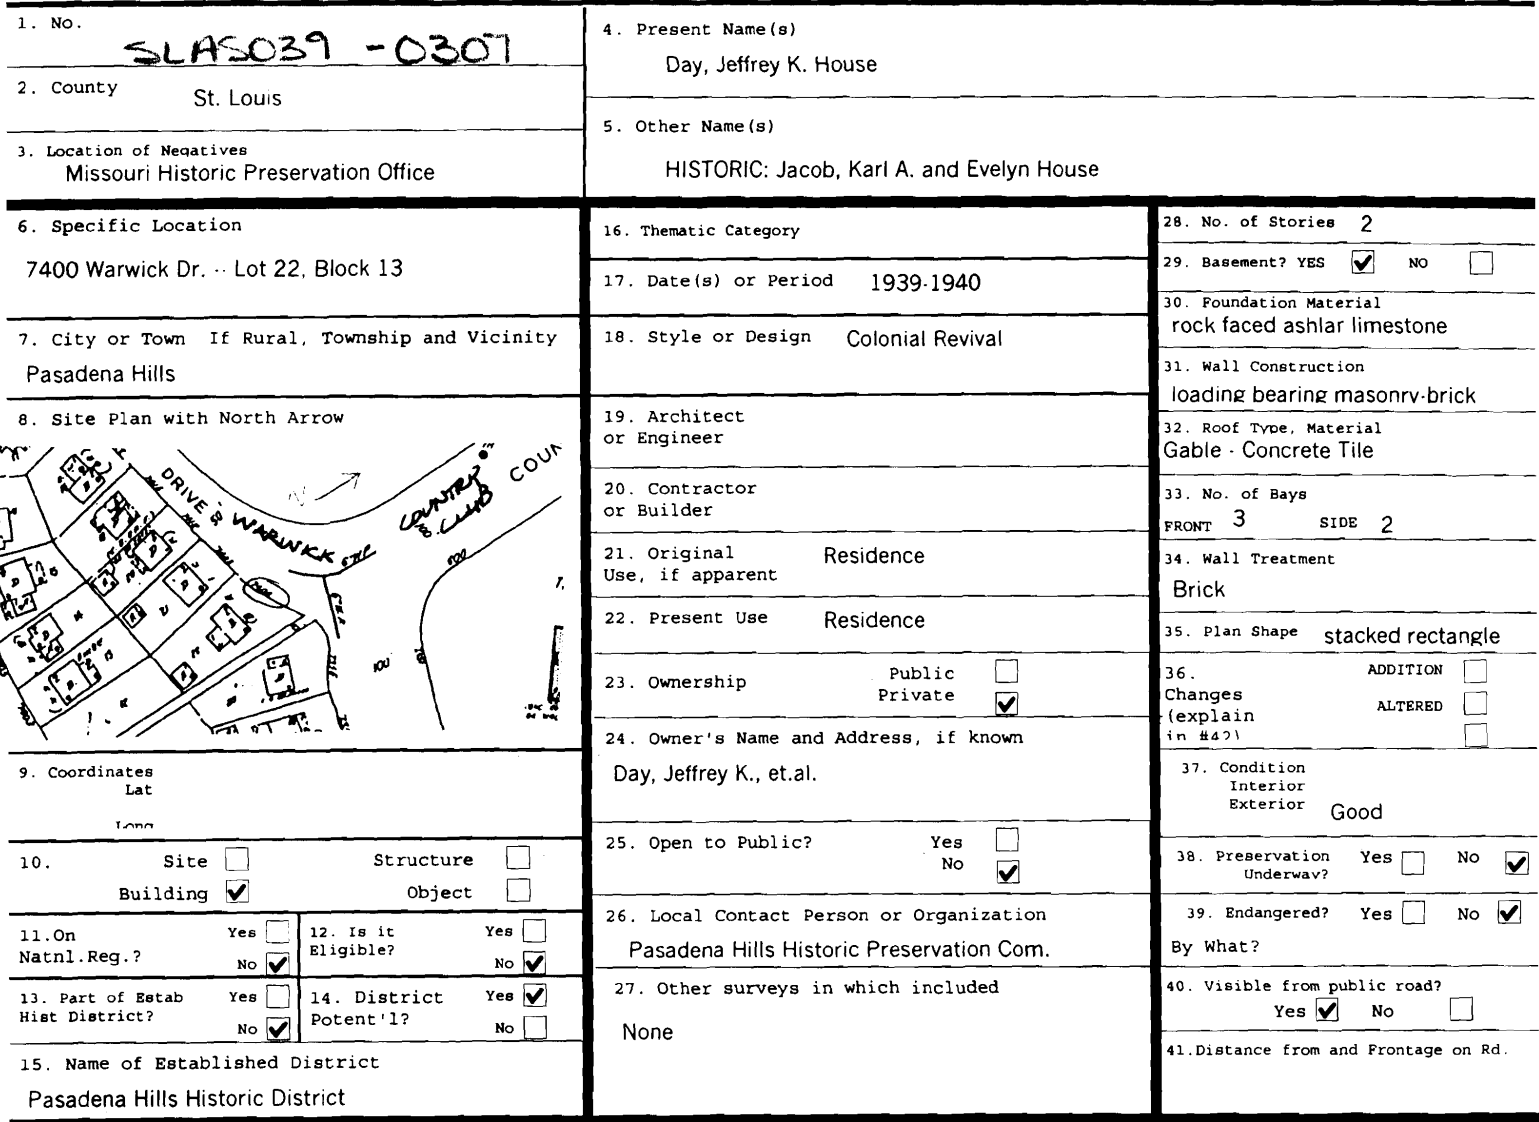 1. No.
SLAS039 -0307
2. County
St. Louis
3. Location of Negatives
Missouri Historic Preservation Office
4. Present Name(s)
Day, Jeffrey K. House
5. Other Name(s)
HISTORIC: Jacob, Karl A. and Evelyn House
6. Specific Location
7400 Warwick Dr. -- Lot 22, Block 13
7. City or Town If Rural, Township and Vicinity
Pasadena Hills
8. Site Plan with North Arrow
DRIVE
WARWICK
COUNTRY
CLUB
COUN
N
9. Coordinates
Lat
Long
10. Site Structure
Building Object
11.On Yes
Natnl.Reg.?
No
12. Is it Yes
Eligible?
No
13. Part of Estab Yes
Hist District?
No
14. District Yes
Potent'l?
No
15. Name of Established District
Pasadena Hills Historic District
16. Thematic Category
17. Date(s) or Period 1939-1940
18. Style or Design Colonial Revival
19. Architect
or Engineer
20. Contractor
or Builder
21. Original Residence
Use, if apparent
22. Present Use Residence
23. Ownership Public
Private
24. Owner's Name and Address, if known
Day, Jeffrey K., et.al.
25. Open to Public? Yes
No
26. Local Contact Person or Organization
Pasadena Hills Historic Preservation Com.
27. Other surveys in which included
None
28. No. of Stories 2
29. Basement? YES NO
30. Foundation Material
rock faced ashlar limestone
31. Wall Construction
loading bearing masonry-brick
32. Roof Type, Material
Gable - Concrete Tile
33. No. of Bays
FRONT 3 SIDE 2
34. Wall Treatment
Brick
35. Plan Shape stacked rectangle
36. ADDITION
Changes
(explain ALTERED
in #42)
37. Condition
Interior
Exterior Good
38. Preservation Yes No
Underway?
39. Endangered? Yes No
By What?
40. Visible from public road?
Yes No
41.Distance from and Frontage on Rd.